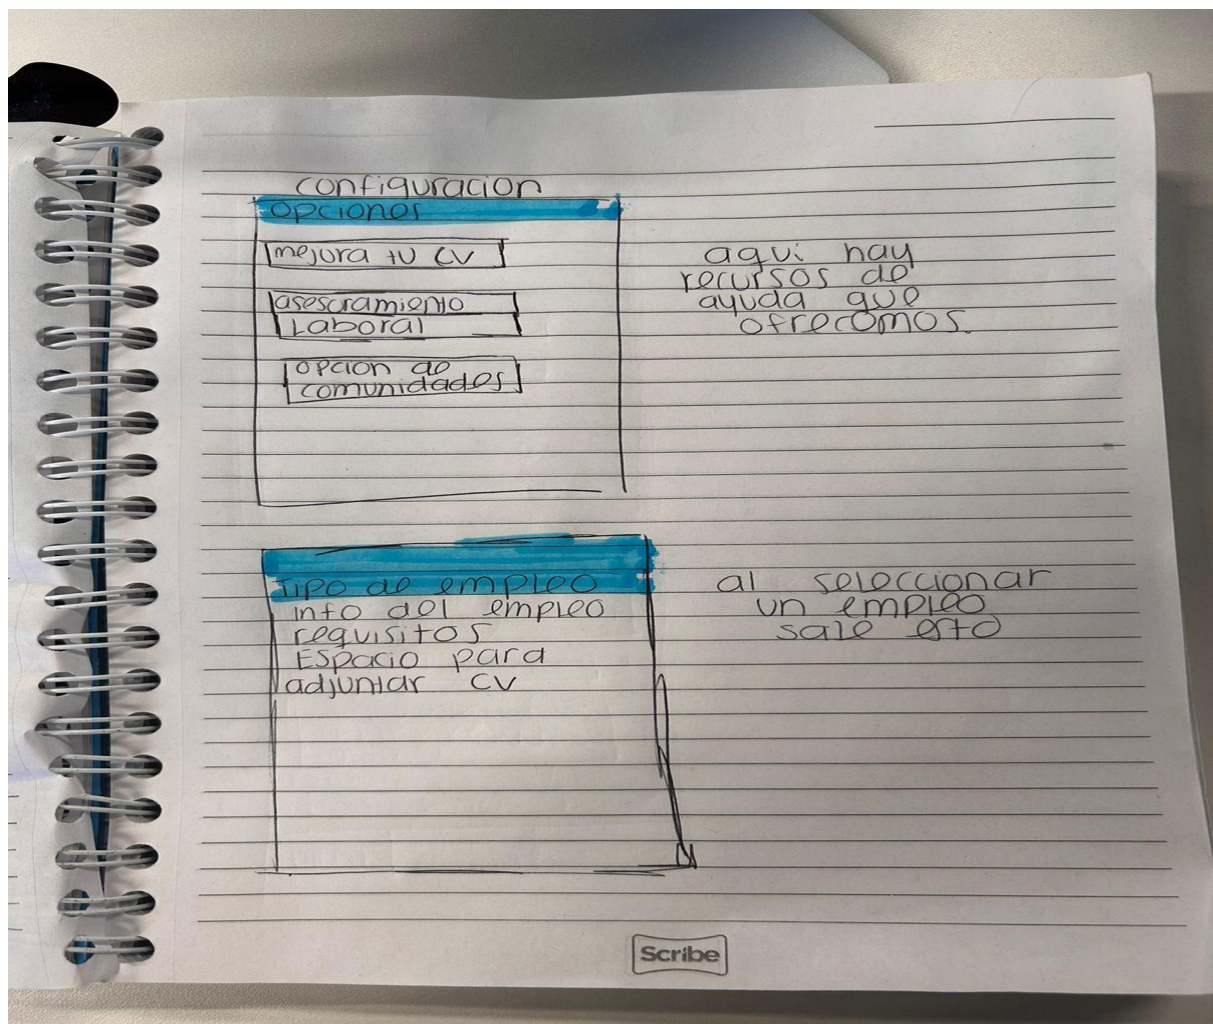 configuracion
opciones
mejora tu CV
asesoramiento
Laboral
opcion de
comunidades
aqui hay
recursos de
ayuda que
ofrecemos.
Tipo de empleo
info del empleo
requisitos
Espacio para
adjuntar CV
al seleccionar
un empleo
sale esto
Scribe